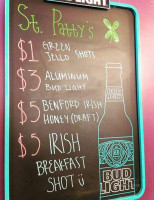 LIGHT
St. Patty's
$1 GREEN
JELLO SHOTS
$3 ALUMINUM
BUD LIGHT
$5 BENFORD IRISH
HONEY (DRAFT)
$5 IRISH
BREAKFAST
SHOT
BUD
LIGHT